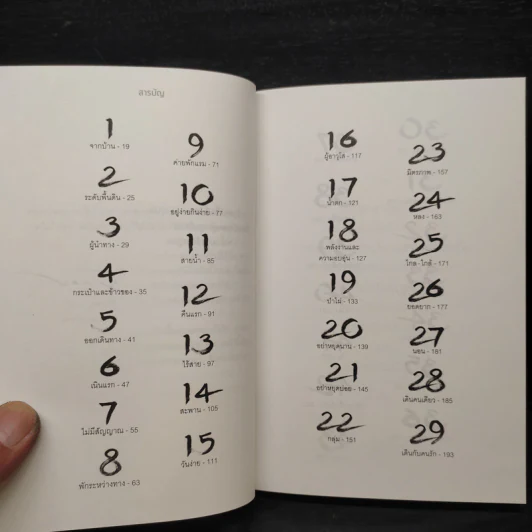 สารบัญ
1
จากบ้าน - 19
2
ระดับพื้นดิน - 25
3
ผู้นำทาง - 29
4
กระเป๋าและข้าวของ - 35
5
ออกเดินทาง - 41
6
เนินแรก - 47
7
ไม่มีสัญญาณ - 55
8
พักระหว่างทาง - 63
9
ค่ายพักแรม - 71
10
อยู่ง่ายกินง่าย - 77
11
สายน้ำ - 85
12
คืนแรก - 91
13
ไร้สาย - 97
14
สะพาน - 105
15
วันง่าย - 111
16
ผู้อาวุโส - 117
17
น้ำตก - 121
18
พลังงานและ
ความอบอุ่น - 127
19
ป่าไม้ - 133
20
อย่าหยุดนาน - 139
21
อย่าหยุดบ่อย - 145
22
กลุ่ม - 151
23
มิตรภาพ - 157
24
หลง - 163
25
ไกล - ใกล้ - 171
26
ยอดยาก - 177
27
นอน - 181
28
เดินคนเดียว - 185
29
เดินกับคนรัก - 193